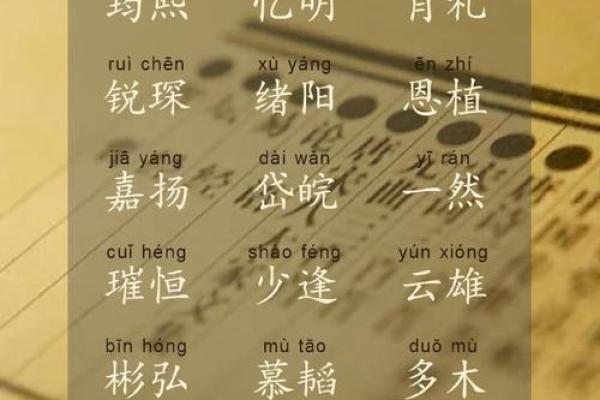 筠熙 忆明 肖礼
ruì chēn xù yáng ēn zhí
锐琛 绪阳 恩植
jiā yáng dài wǎn yī rán
嘉扬 岱皖 一然
cuǐ héng shǎo féng yún xióng
璀恒 少逢 云雄
bīn hóng mù tāo duō mù
彬弘 慕韬 多木